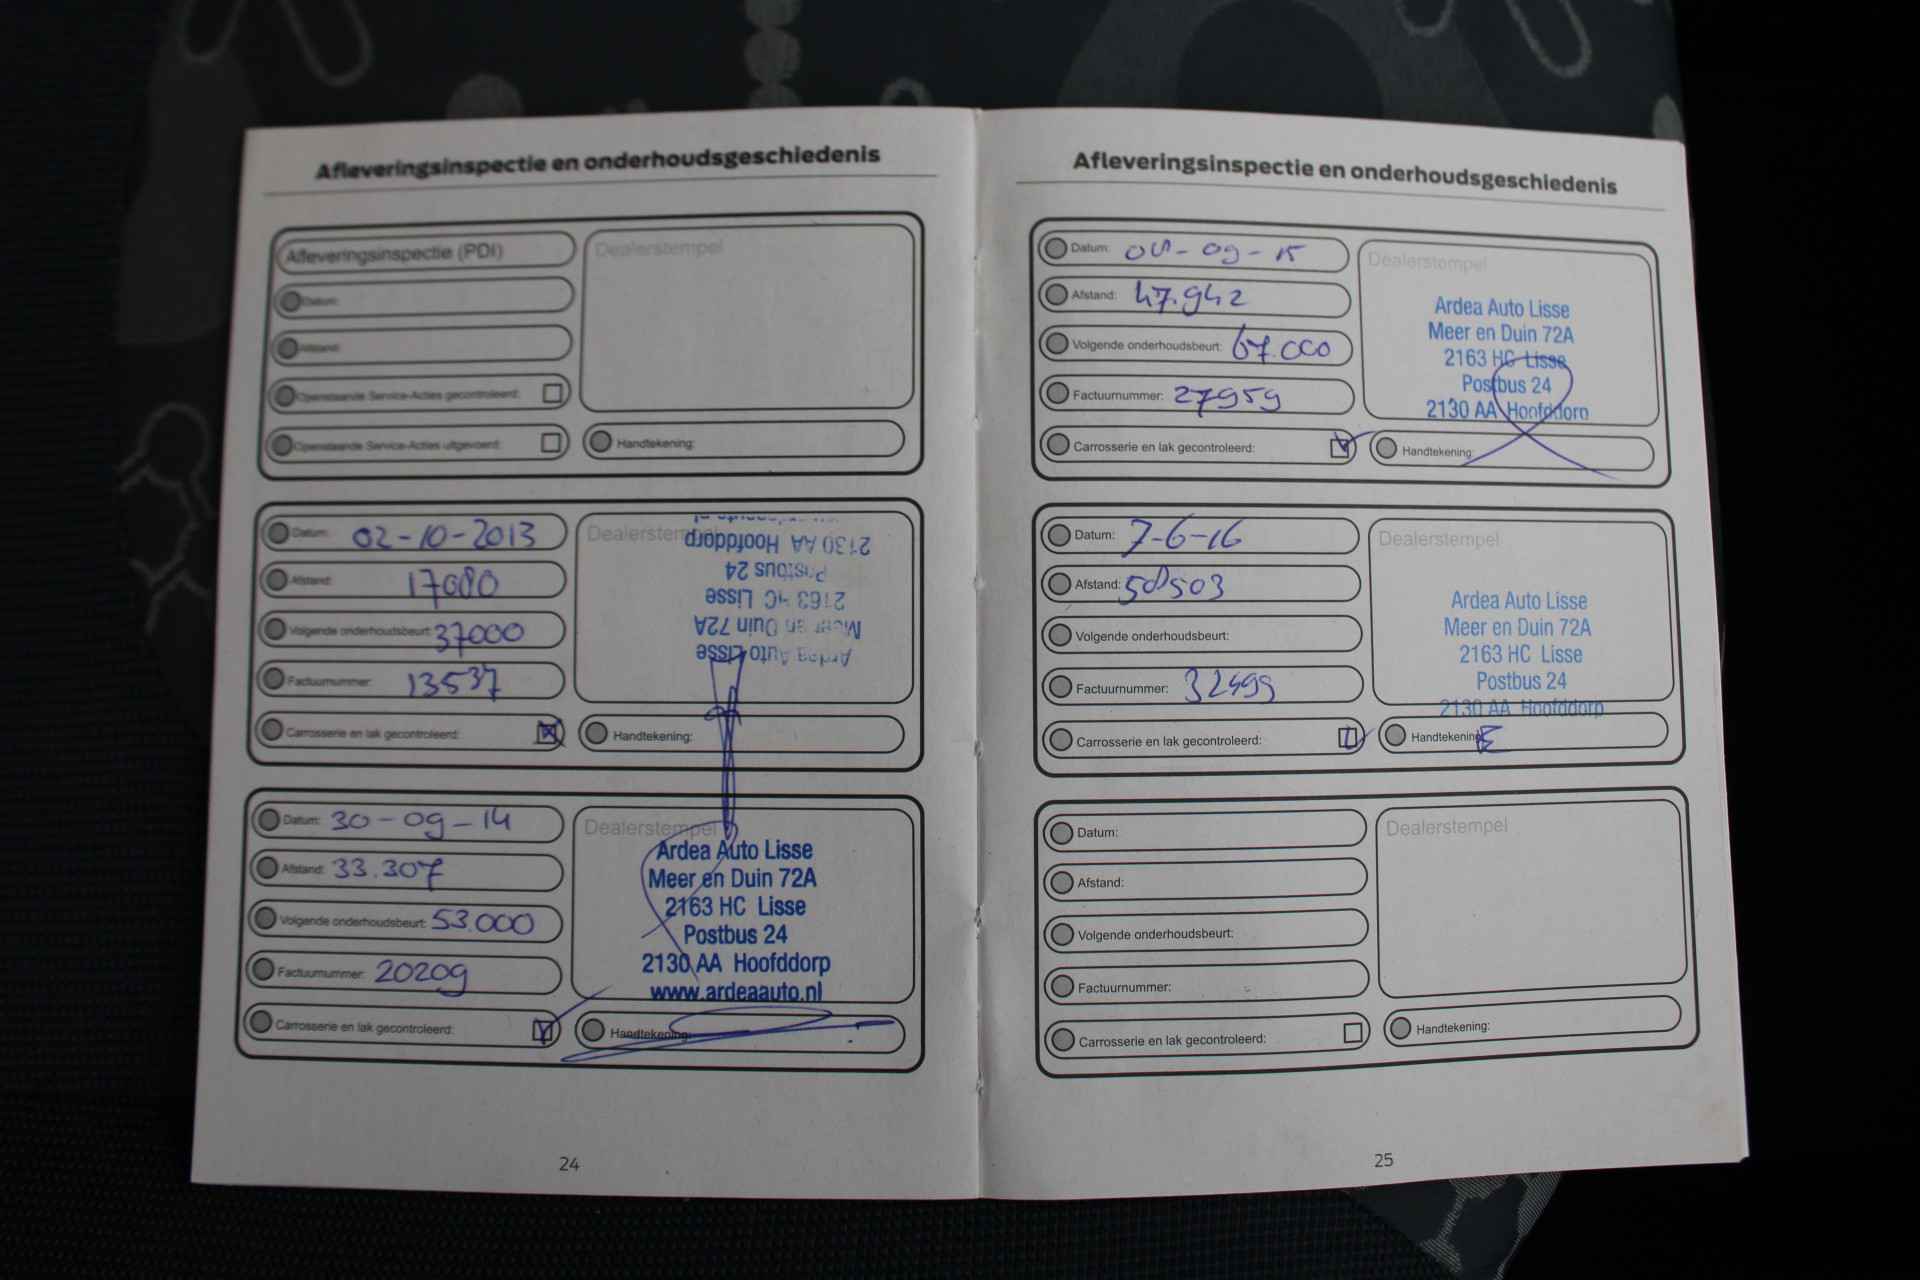 Afleveringsinspectie en onderhoudsgeschiedenis
Afleveringsinspectie (PDI)
Datum:
Afstand:
Openstaande Service-Acties gecontroleerd:
Openstaande Service-Acties uitgevoerd:
Dealerstempel
Handtekening:
Datum: 02-10-2013
Afstand: 17080
Volgende onderhoudsbeurt: 37000
Factuurnummer: 13537
Carrosserie en lak gecontroleerd:
Dealerstempel
Ardea Auto Lisse
Meer en Duin 72A
2163 HC Lisse
Postbus 24
2130 AA Hoofddorp
Handtekening:
Datum: 30-09-14
Afstand: 33.307
Volgende onderhoudsbeurt: 53.000
Factuurnummer: 20209
Carrosserie en lak gecontroleerd:
Dealerstempel
Ardea Auto Lisse
Meer en Duin 72A
2163 HC Lisse
Postbus 24
2130 AA Hoofddorp
www.ardeaauto.nl
Handtekening:
24
Afleveringsinspectie en onderhoudsgeschiedenis
Datum:
Afstand: 47.942
Volgende onderhoudsbeurt: 67.000
Factuurnummer: 27959
Carrosserie en lak gecontroleerd:
Dealerstempel
Ardea Auto Lisse
Meer en Duin 72A
2163 HC Lisse
Postbus 24
2130 AA Hoofddorp
Handtekening:
Datum: 7-6-16
Afstand: 58503
Volgende onderhoudsbeurt:
Factuurnummer: 32499
Carrosserie en lak gecontroleerd:
Dealerstempel
Ardea Auto Lisse
Meer en Duin 72A
2163 HC Lisse
Postbus 24
2130 AA Hoofddorp
Handtekening:
Datum:
Afstand:
Volgende onderhoudsbeurt:
Factuurnummer:
Carrosserie en lak gecontroleerd:
Dealerstempel
Handtekening:
25